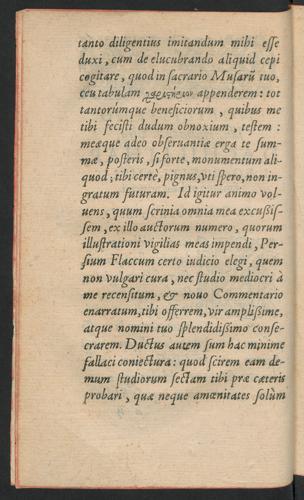 tanto diligentius imitandum mihi esse
duxi, cum de elucubrando aliquid cepi
cogitare, quod in sacrario Musarũ tuo,
ceu tabulam χαριστήριον appenderem: tot
tantorúmque beneficiorum, quibus me
tibi fecisti dudum obnoxium, testem:
meæque adeo obseruantiæ erga te sum-
mæ, posteris, si forte, monumentum ali-
quod: tibi certè, pignus, vti spero, non in-
gratum futuram. Id igitur animo vol-
uens, quum scrinia omnia mea excussis-
sem, ex illo auctorum numero, quorum
illustrationi vigilias meas impendi, Per-
sium Flaccum certo iudicio elegi, quem
non vulgari cura, nec studio mediocri à
me recensitum, & nouo Commentario
enarratum, tibi offerrem, vir amplissime,
atque nomini tuo splendidissimo conse-
crarem. Ductus autem sum hac minime
fallaci coniectura: quod scirem eam de-
mum studiorum sectam tibi præ cæteris
probari, quæ neque amœnitates solùm